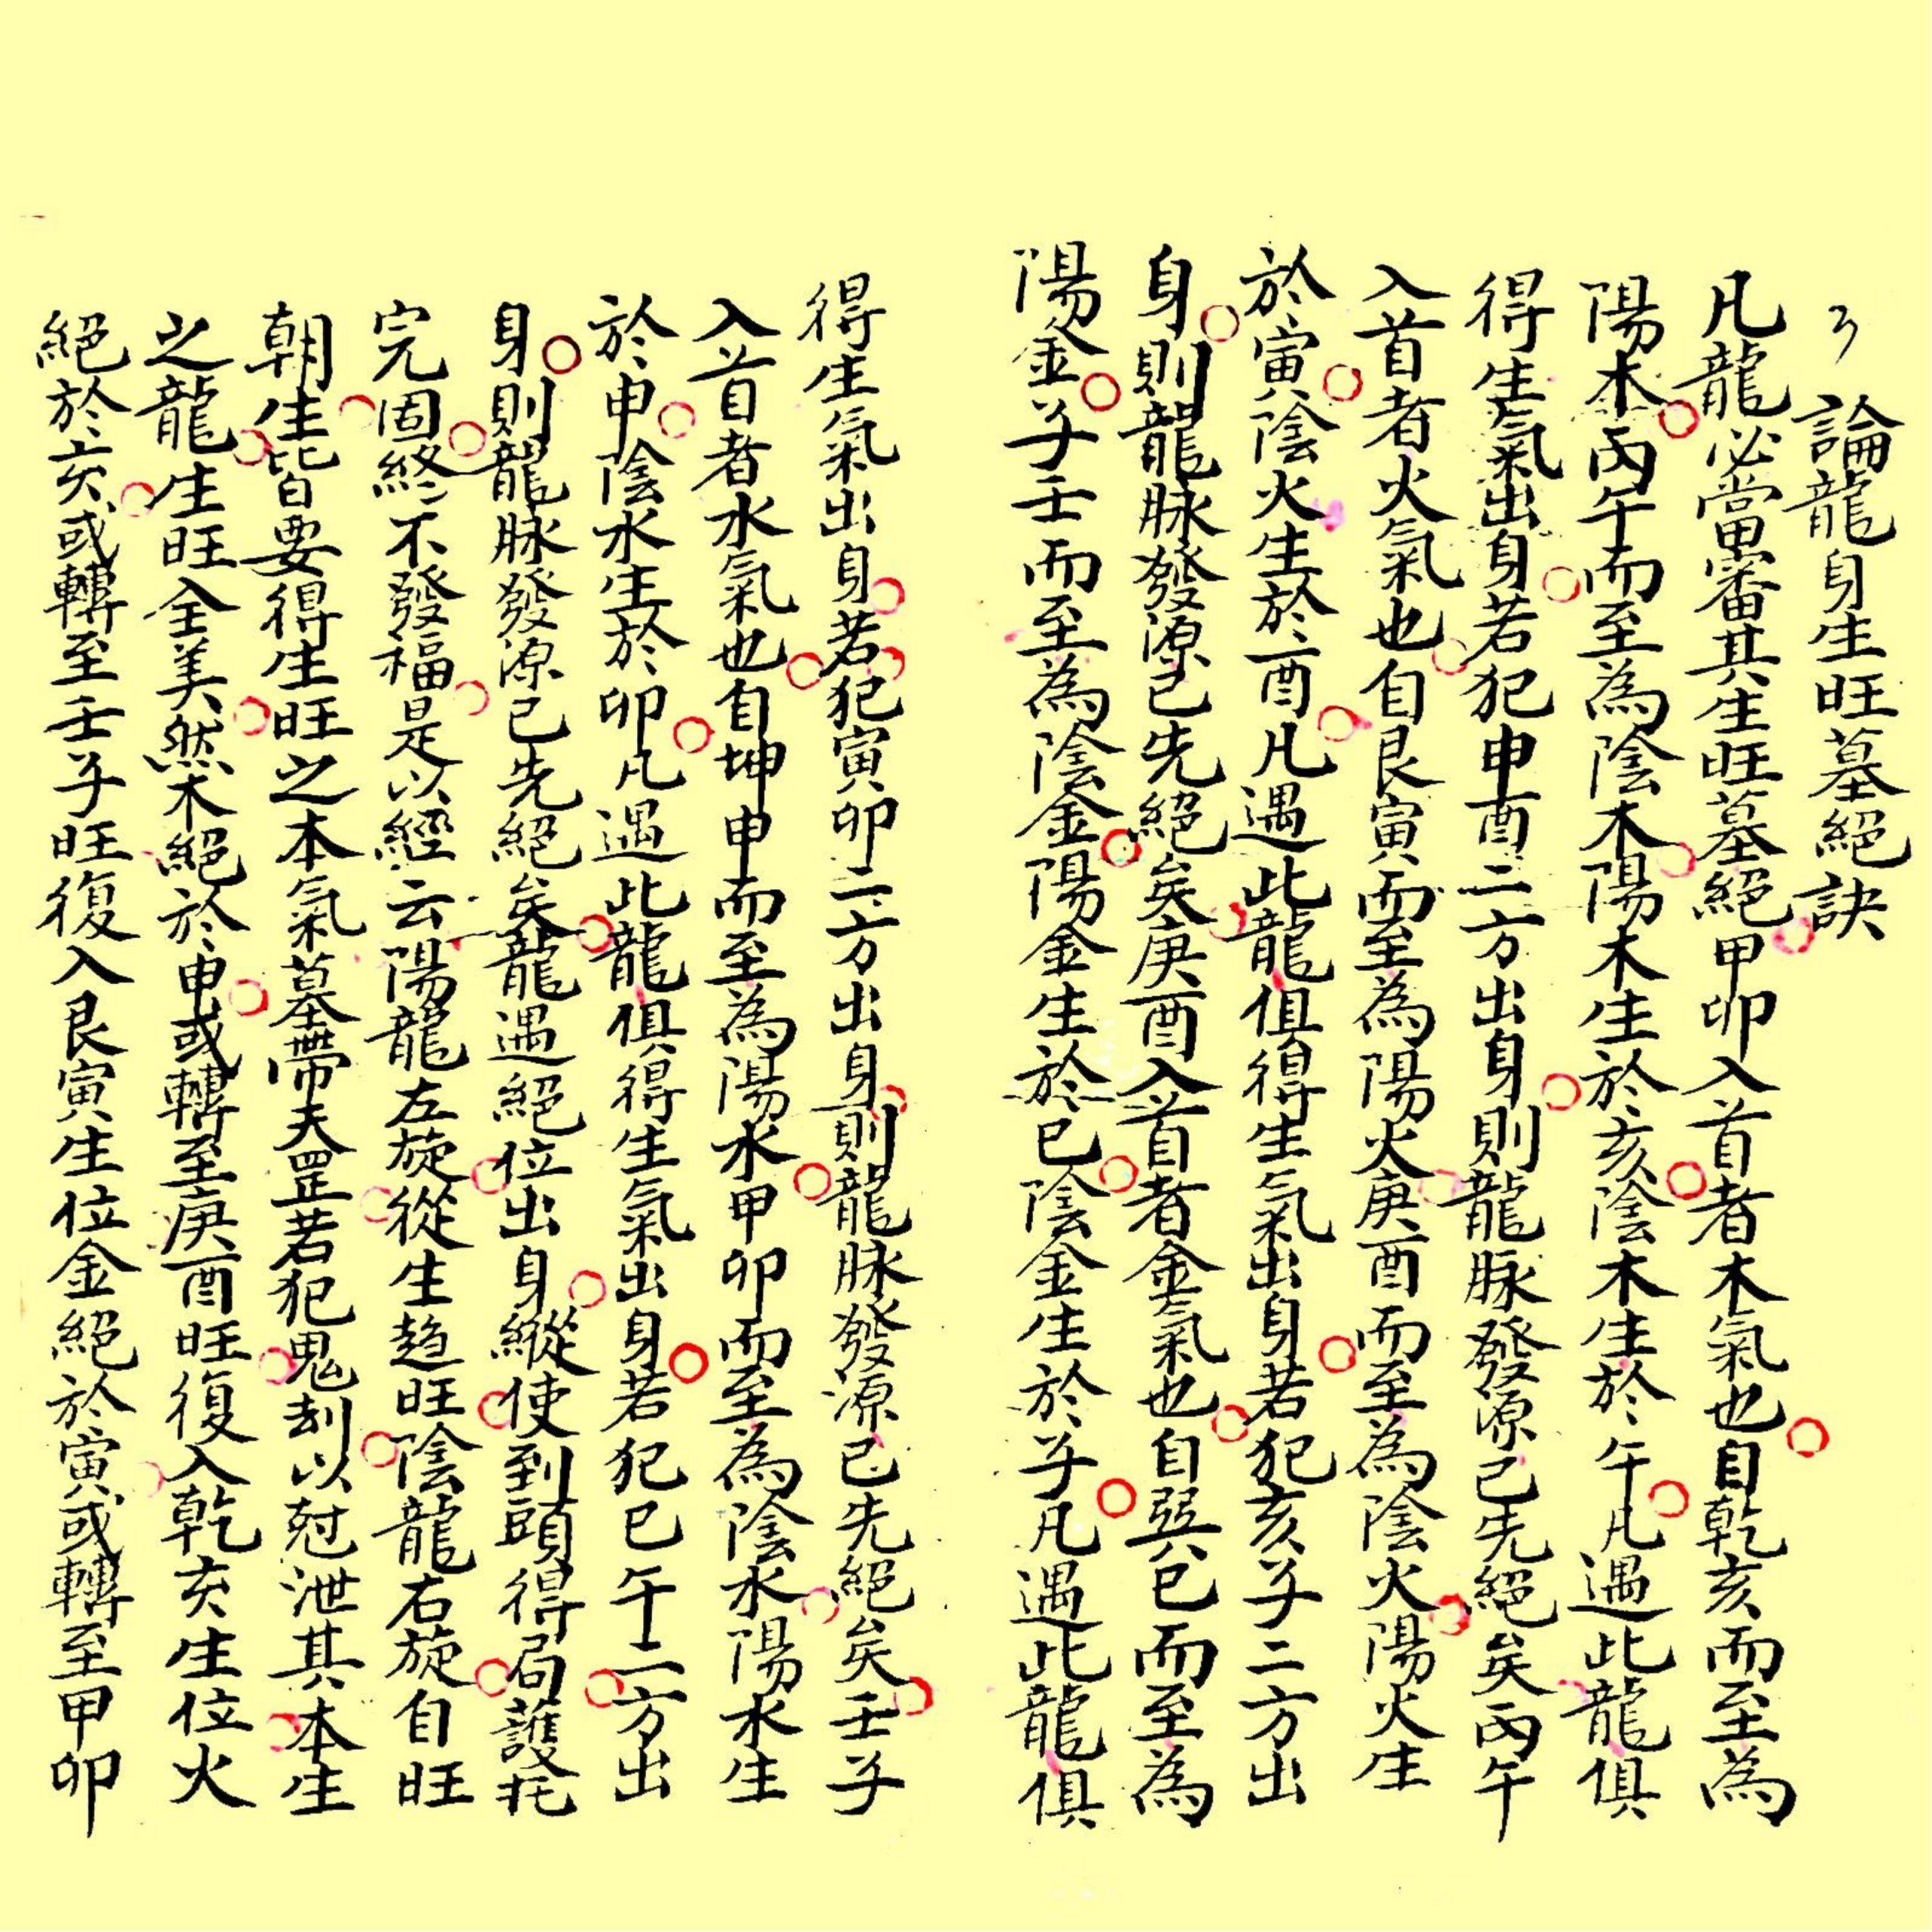 論龍身生旺墓絕訣
凡龍必當審其生旺墓絕甲卯入首者木氣也自乾亥而至為
陽木丙午而至為陰木陽木生於亥陰木生於午凡遇此龍俱
得生氣出身若犯申酉二方出身則龍脉發源已先絕矣丙午
入首者火氣也自艮寅而至為陽火庚酉而至為陰火陽火生
於寅陰火生於酉凡遇此龍俱得生氣出身若犯亥子二方出
身則龍脉發源已先絕矣庚酉入首者金氣也自巽巳而至為
陽金子壬而至為陰金陽金生於巳陰金生於子凡遇此龍俱
得生氣出身若犯寅卯二方出身則龍脉發源已先絕矣壬子
入首者水氣也自坤申而至為陽水甲卯而至為陰水陽水生
於申陰水生於卯凡遇此龍俱得生氣出身若犯巳午二方出
身則龍脉發源已先絕矣龍遇絕位出身縱使到頭得局護托
完固終不發福是以經云陽龍左旋從生趨旺陰龍右旋自旺
朝生皆要得生旺之本氣墓帶天罡若犯鬼刦以尅泄其本生
之龍生旺全美然木絕於申或轉至庚酉旺復入乾亥生位火
絕於亥或轉至壬子旺復入艮寅生位金絕於寅或轉至甲卯